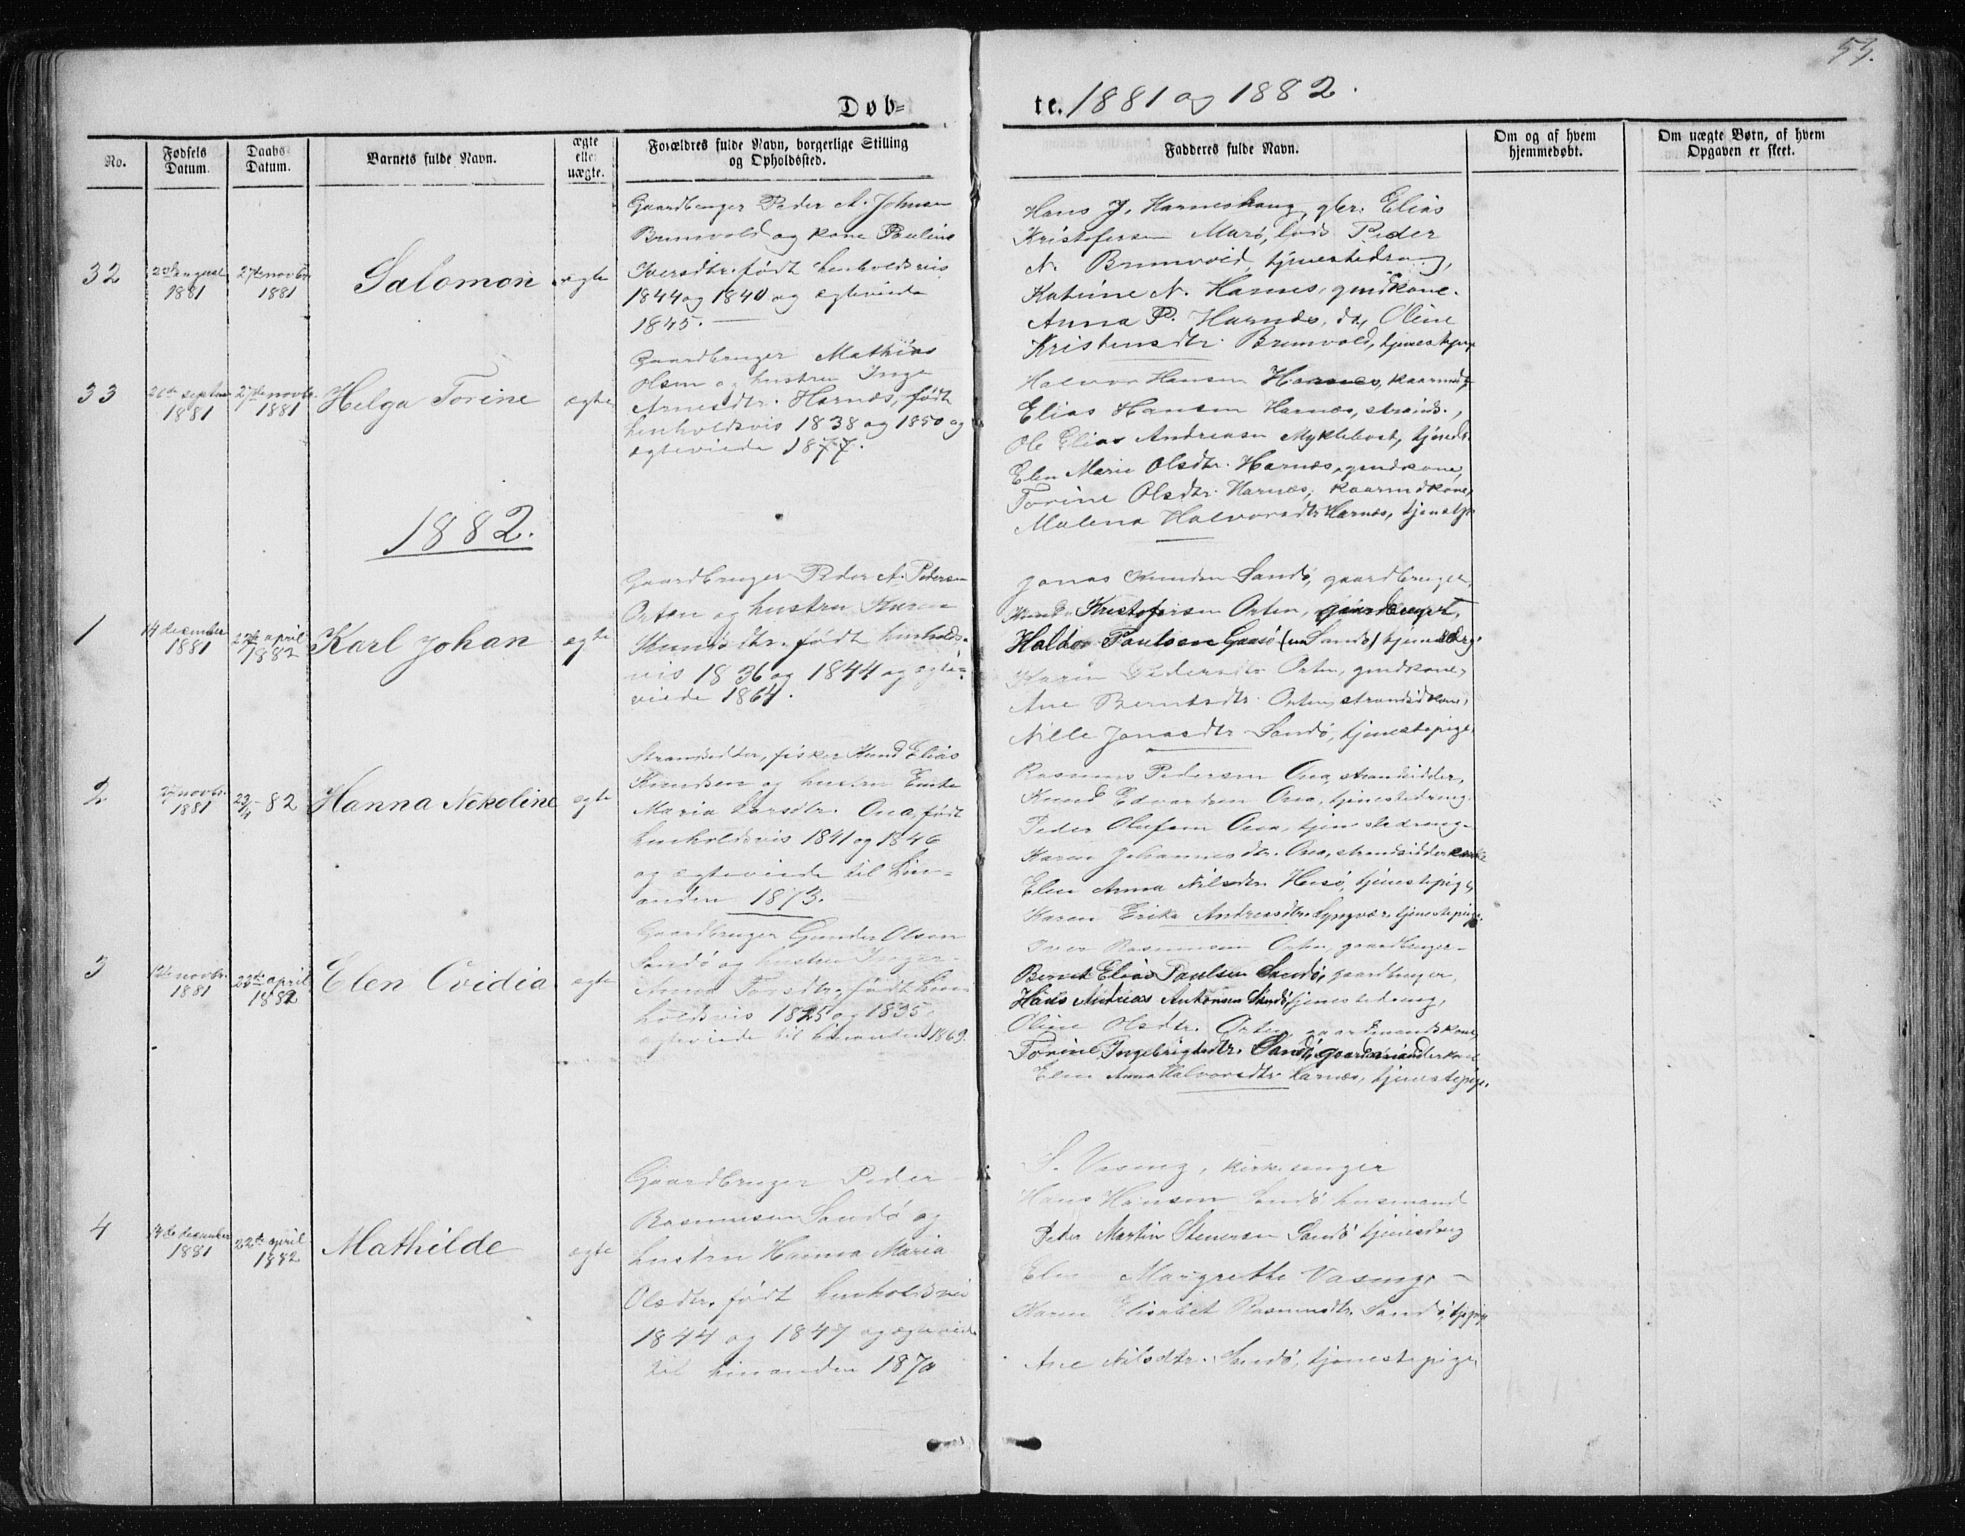 55.
Døb-
te. 1881 og 1882.
No.
Fødsels Datum.
Daabs Datum.
Barnets fulde Navn.
ægte eller uægte.
Forældres fulde Navn, borgerlige Stilling og Opholdssted.
Fadderes fulde Navn.
Om og af hvem hjemmedøbt.
Om uægte Børn, af hvem Opgaven er skeet.
32
august 1881
27de novbr. 1881
Salomon
ægte
Gaardbruger Peder A. Johnsen
Brunvold og kone Pauline
Iversdtr. født henholdsvis
1844 og 1840 og ægteviede
1845.
Hans J. Harneshaug, gbr. Elias
Kristofersen Marø, lods Peder
N. Brunvold, tjenestedreng,
Katrine N. Harnes, gmdkone.
Anna P. Harnæs, do, Oline
Kristensdtr. Brunvold, tjenestepige
33
26de septbr 1881
27de novbr. 1881
Helga Torine
ægte
Gaardbruger Mathias
Olsen og hustru Inge
Arnesdtr. Harnæs, født
henholdsvis 1838 og 1850 og
ægteviede 1877.
Halvor Hansen Harnes, kaarmd,
Elias Hansen Harnæs, strands.,
Ole Elias Andreasen Myklebost, tjenedr.
Elen Marie Olsdtr. Harnæs, gmdkone,
Torine Olsdtr. Harnæs, kaarmdkone,
Malena Halvorsdtr Harnæs, tjenestp.
1882.
1
14 december 1881
april 1882
Karl Johan
ægte
Gaardbruger Peder A. Pedersen
Orten og hustru Karen
Knudsdtr. født henholds-
vis 1836 og 1844 og ægte-
viede 1864.
Jonas Knudsen Sandø, gaardbruger,
Knud Kristofersen Orten, gaardbruger,
Haldor Paulsen Gaasø (nu Sandø) tjenestedrg.
Karen Pedersdtr Orten, gmdkone,
Ane Berntsdtr. Orten, strandsidkone,
Nille Jonasdtr Sandø, tjenestepige.
2
novbr. 1881
23/4 - 82
Hanna Nekoline
ægte
Strandsidder, fisker Knud Elias
Knudsen og hustru
Maria Larsdtr. Ona, født
henholdsvis 1841 og 1846
og ægteviede til hin-
anden 1873.
Rasmus Pedersen Ona, strandsidder,
Knud Edvardsen Ona, tjenestedreng
Peder Olufsen Ona, tjenestedreng
Karen Johannesdtr. Ona, strandsidderkone
Elen Anna Nilsdtr. Husø, tjenestepige,
Karen Erika Andreasdtr. Lyngvær, tjenestepige.
3
12te novbr. 1881
23de april 1882
Elen Ovidia
ægte
Gaardbruger Gunder Olsen
Sandø og hustru Inger-
Anna Torsdtr, født hen-
holdsvis 1825 og 1835
ægteviede til hinanden 1869.
Iver Rasmussen Orten, gaardbruger
Bernt Elias Paulsen Sandø, gaardbruger,
Hans Andreas Antonsen Sandø, tjenestedreng,
Oline Olsdtr. Orten, gaardmandskone,
Torine Ingebrigtsdtr. Sandø, gaardmandskone
Elen Anna Halvorsdtr Harnæs, tjenestepige.
4
14de december 1881
22de april 1882
Mathilde
ægte
Gaardbruger Peder
Rasmussen Sandø og
hustru Hanna Maria
Olsdtr. født henholdsvis
1844 og 1847 og ægteviede
til hinanden 1870
S. Vasing, kirkesanger
Hans Hansen Sandø husmand
Peder Martin Stenersen Sandø tjenesdreng
Elen Margrethe Vasing. -
Karen Elisabet Rasmusdtr. Sandø, tjpig
Ane Nilsdtr. Sandø, tjenestepige